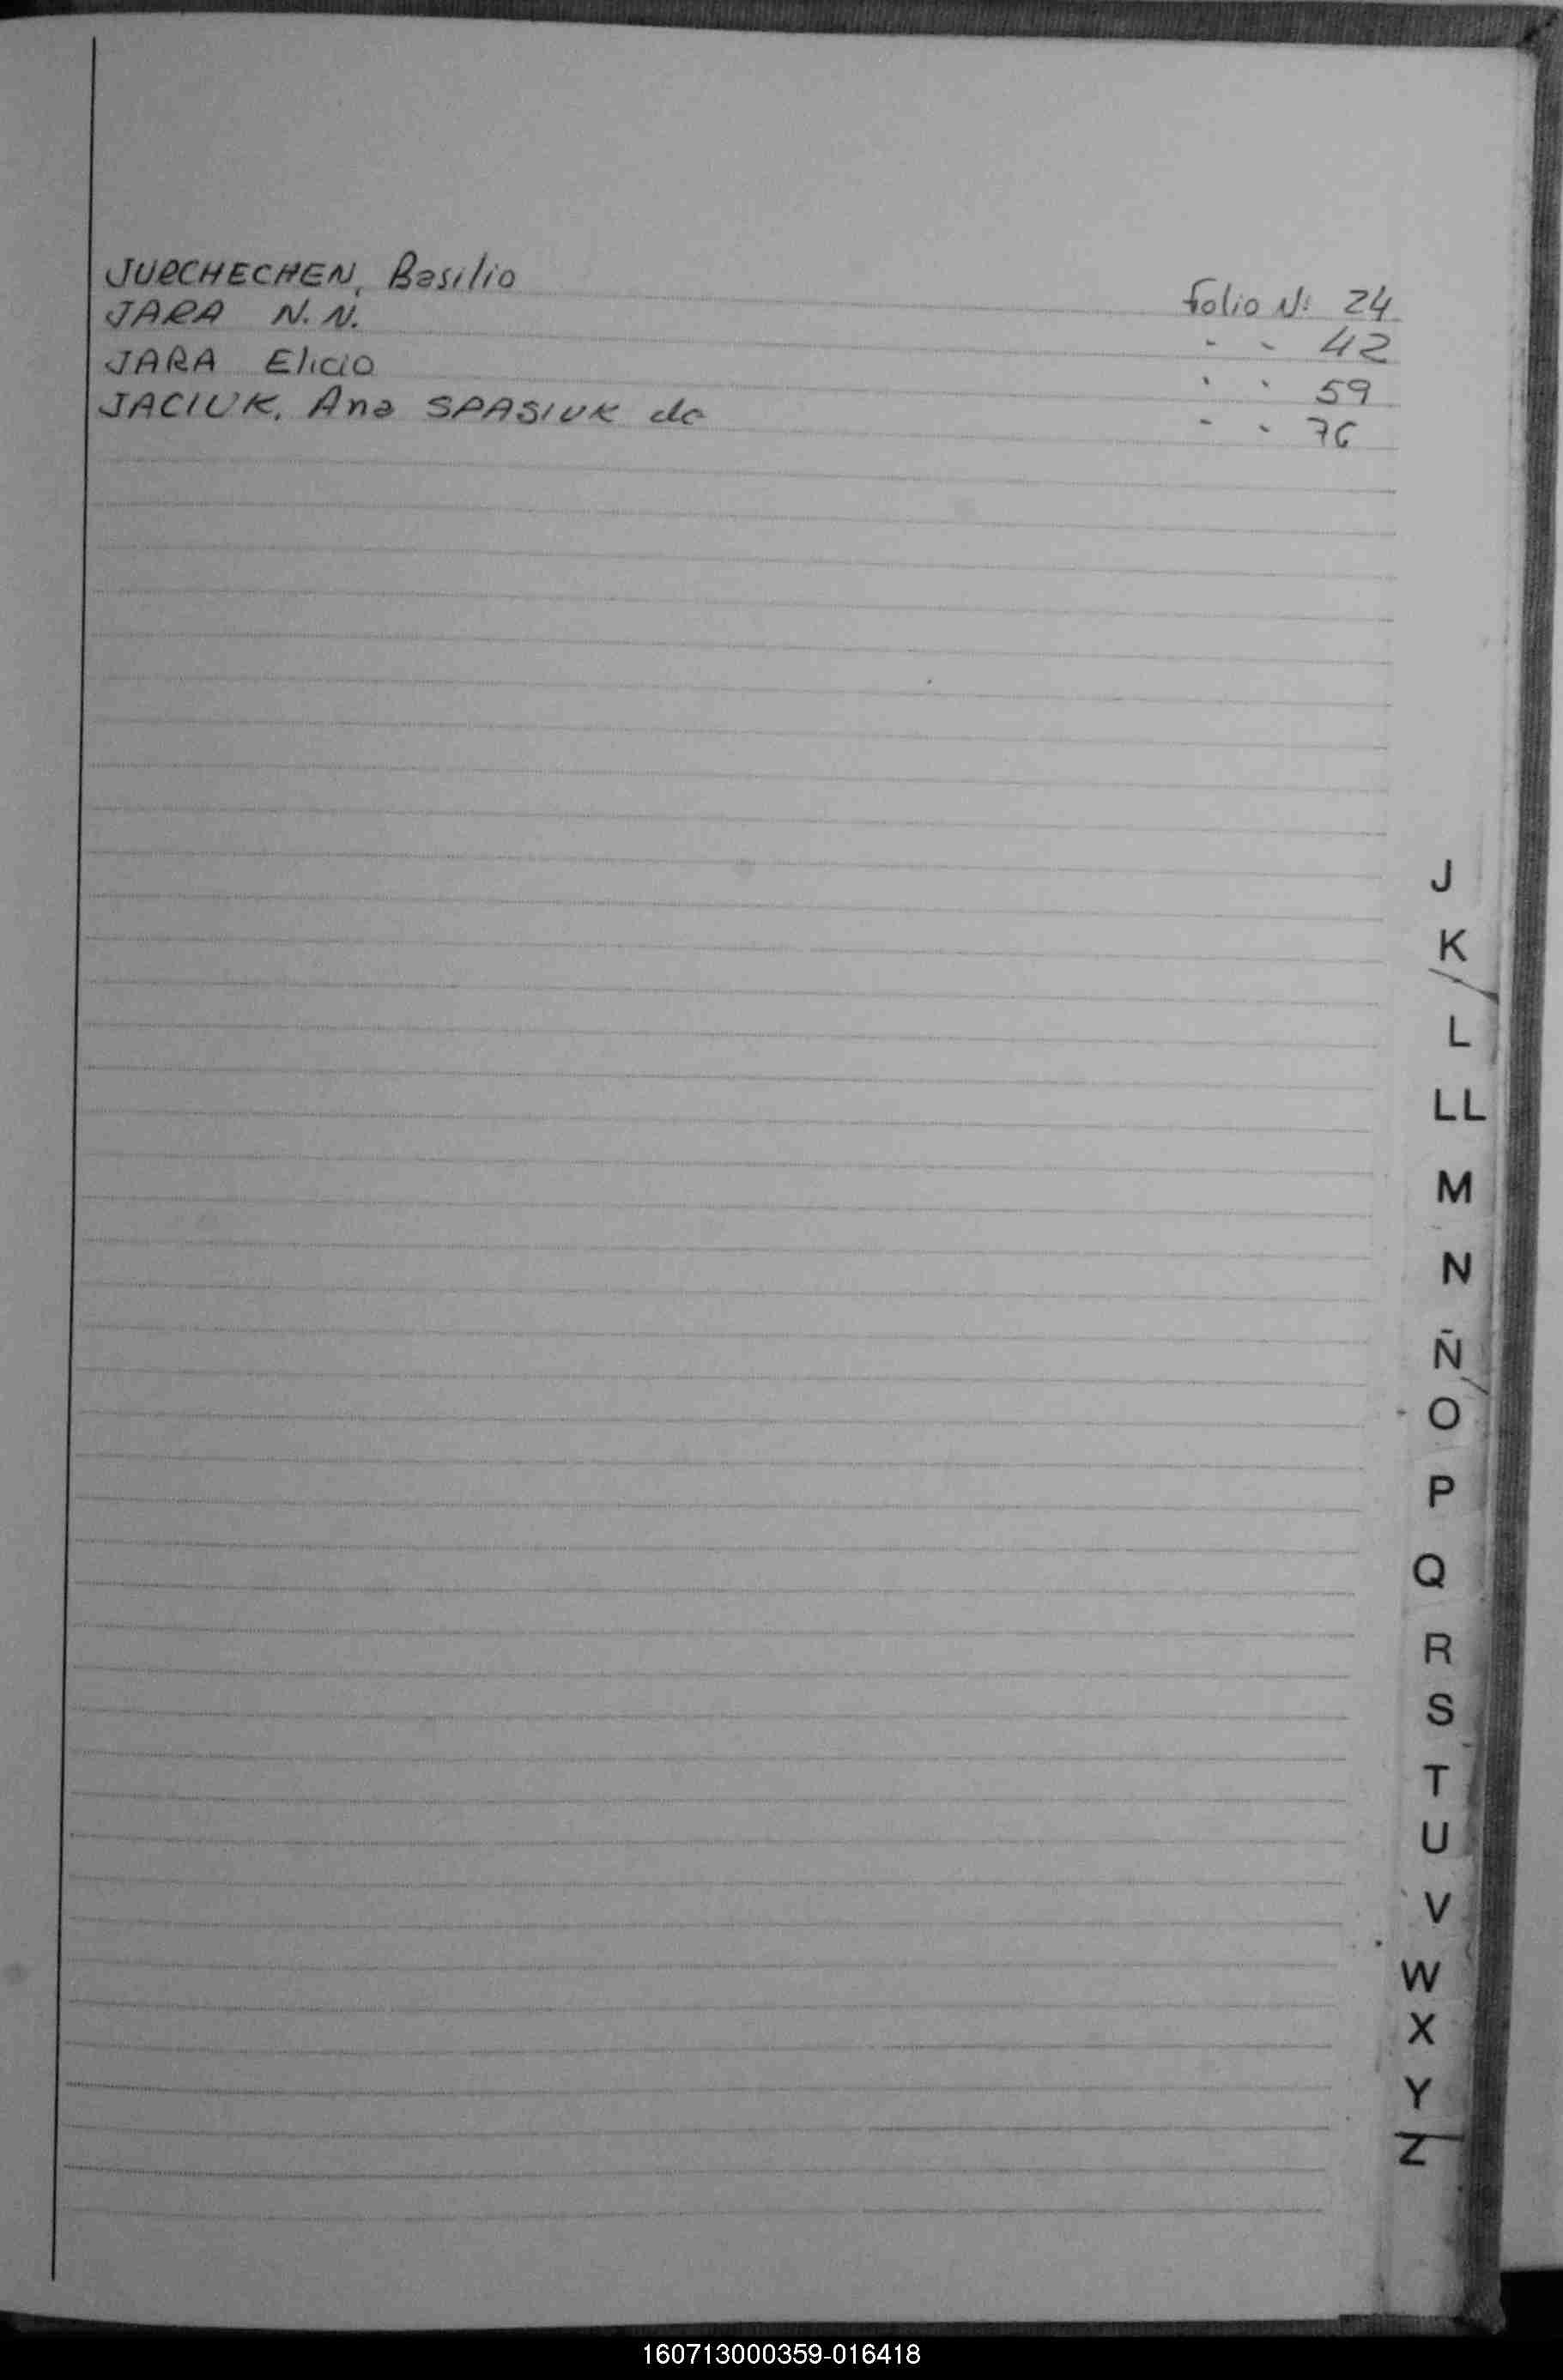 JURCHECHEN, Basilio Folio Nº 24
JARA N.N. " " 42
JARA Elicio " " 59
JACIUK, Ana SPASIUK de " " 76
J
K
L
LL
M
N
Ñ
O
P
Q
R
S
T
U
V
W
X
Y
Z
160713000359-016418